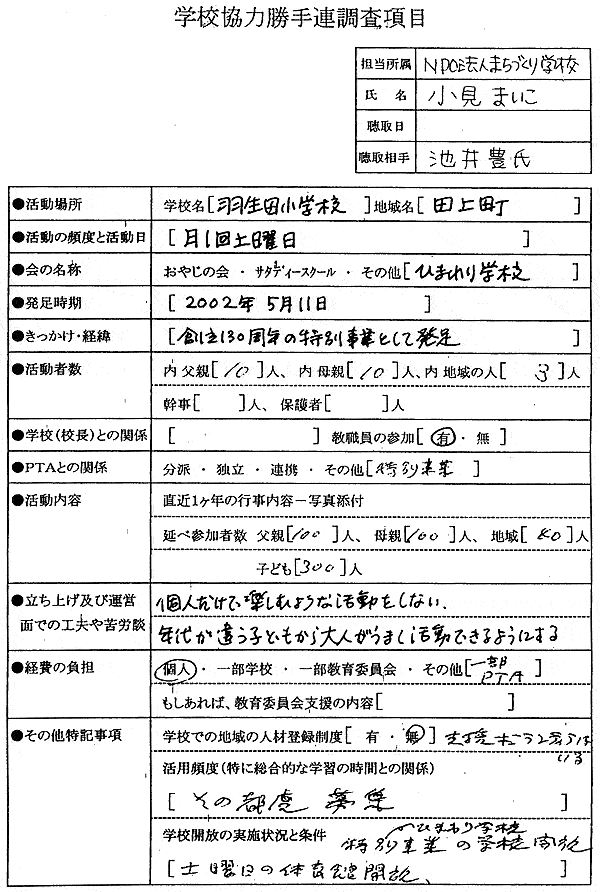 学校協力勝手連調査項目
担当所属 NPO法人まちづくり学校
氏 名 小見 まいこ
聴取日
聴取相手 池井 豊氏
●活動場所 学校名[羽生田小学校 ]地域名[ 田上町 ]
●活動の頻度と活動日 [ 月1回土曜日 ]
●会の名称 おやじの会 ・ サタデースクール ・ その他[ひまわり学校 ]
●発足時期 [ 2002年 5月11日 ]
●きっかけ・経緯 [創立130周年の特別事業として発足 ]
●活動者数 内 父親[ 10 ]人、 内 母親[ 10 ]人、内 地域の人[ 3 ]人
幹事[ ]人、 保護者[ ]人
●学校(校長)との関係 [ ] 教職員の参加[ 有 ・ 無 ]
●PTAとの関係 分派 ・ 独立 ・ 連携 ・ その他[特別事業 ]
●活動内容 直近1ヶ年の行事内容－写真添付
延べ参加者数 父親[100 ]人、 母親[100 ]人、 地域[ 80 ]人
子ども[300 ]人
●立ち上げ及び運営 個人だけで楽しむような活動をしない、
面での工夫や苦労談 年代が違う子どもから大人がうまく活動できるようにする
●経費の負担 個人 ・ 一部学校 ・ 一部教育委員会 ・ その他[一部PTA ]
もしあれば、教育委員会支援の内容[ ]
●その他特記事項 学校での地域の人材登録制度[ 有 ・ 無 ] 支援ボランティアはいる
活用頻度(特に総合的な学習の時間との関係)
[ その都度 募集 ]
学校開放の実施状況と条件 特別事業のひまわり学校の学校開放
[土曜日の体育館開放、 ]